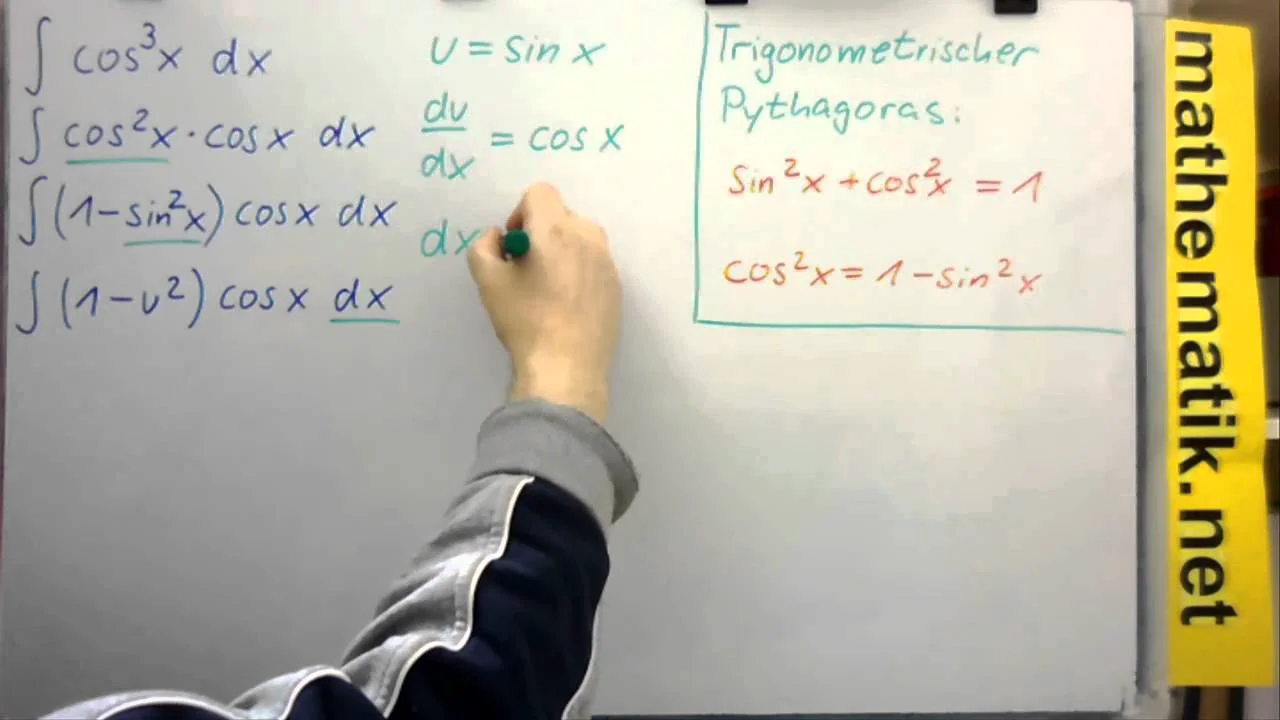 ∫ cos³x dx
∫ cos²x · cosx dx
∫(1-sin²x) cosx dx
∫(1-u²) cosx dx
u = sin x
du
dx
= cos x
dx
Trigonometrischer
Pythagoras:
sin²x + cos²x = 1
cos²x = 1 - sin²x
mathematik.net